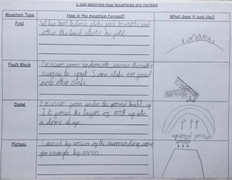 I can describe how mountains are formed
Mountain Type
How is the mountain formed?
What does it look like?
Fold
When two tectonic plates push towards each
other the land starts to fold.
Fault Block
Pressure from underneath
surface to
other
Dome
Pressure from under the ground builds up
It pushes the layers of rock up into
a dome shape.
Plateau
Caused by erosion of the surrounding area
for example by rivers.